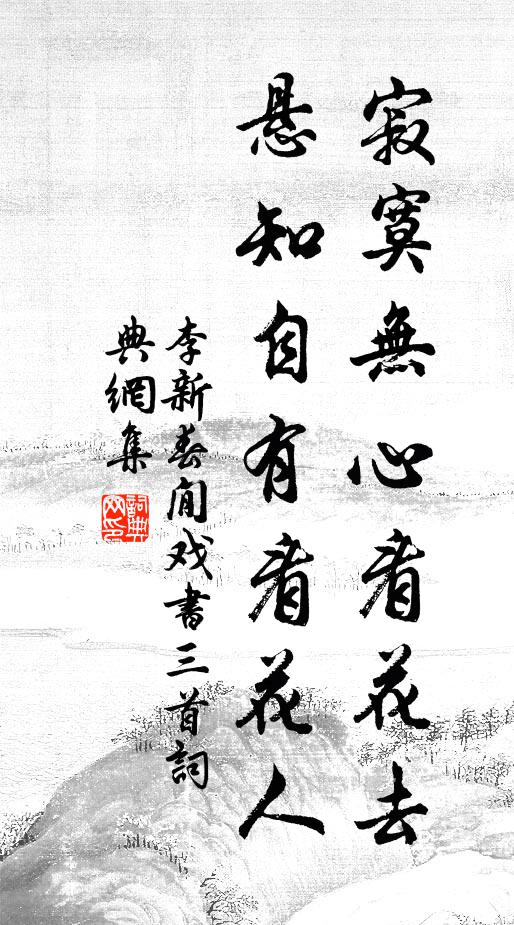 寂寞無心看花去
悬知自有看花人
李新春閒戏書三首詞
典網集
詞典
网印